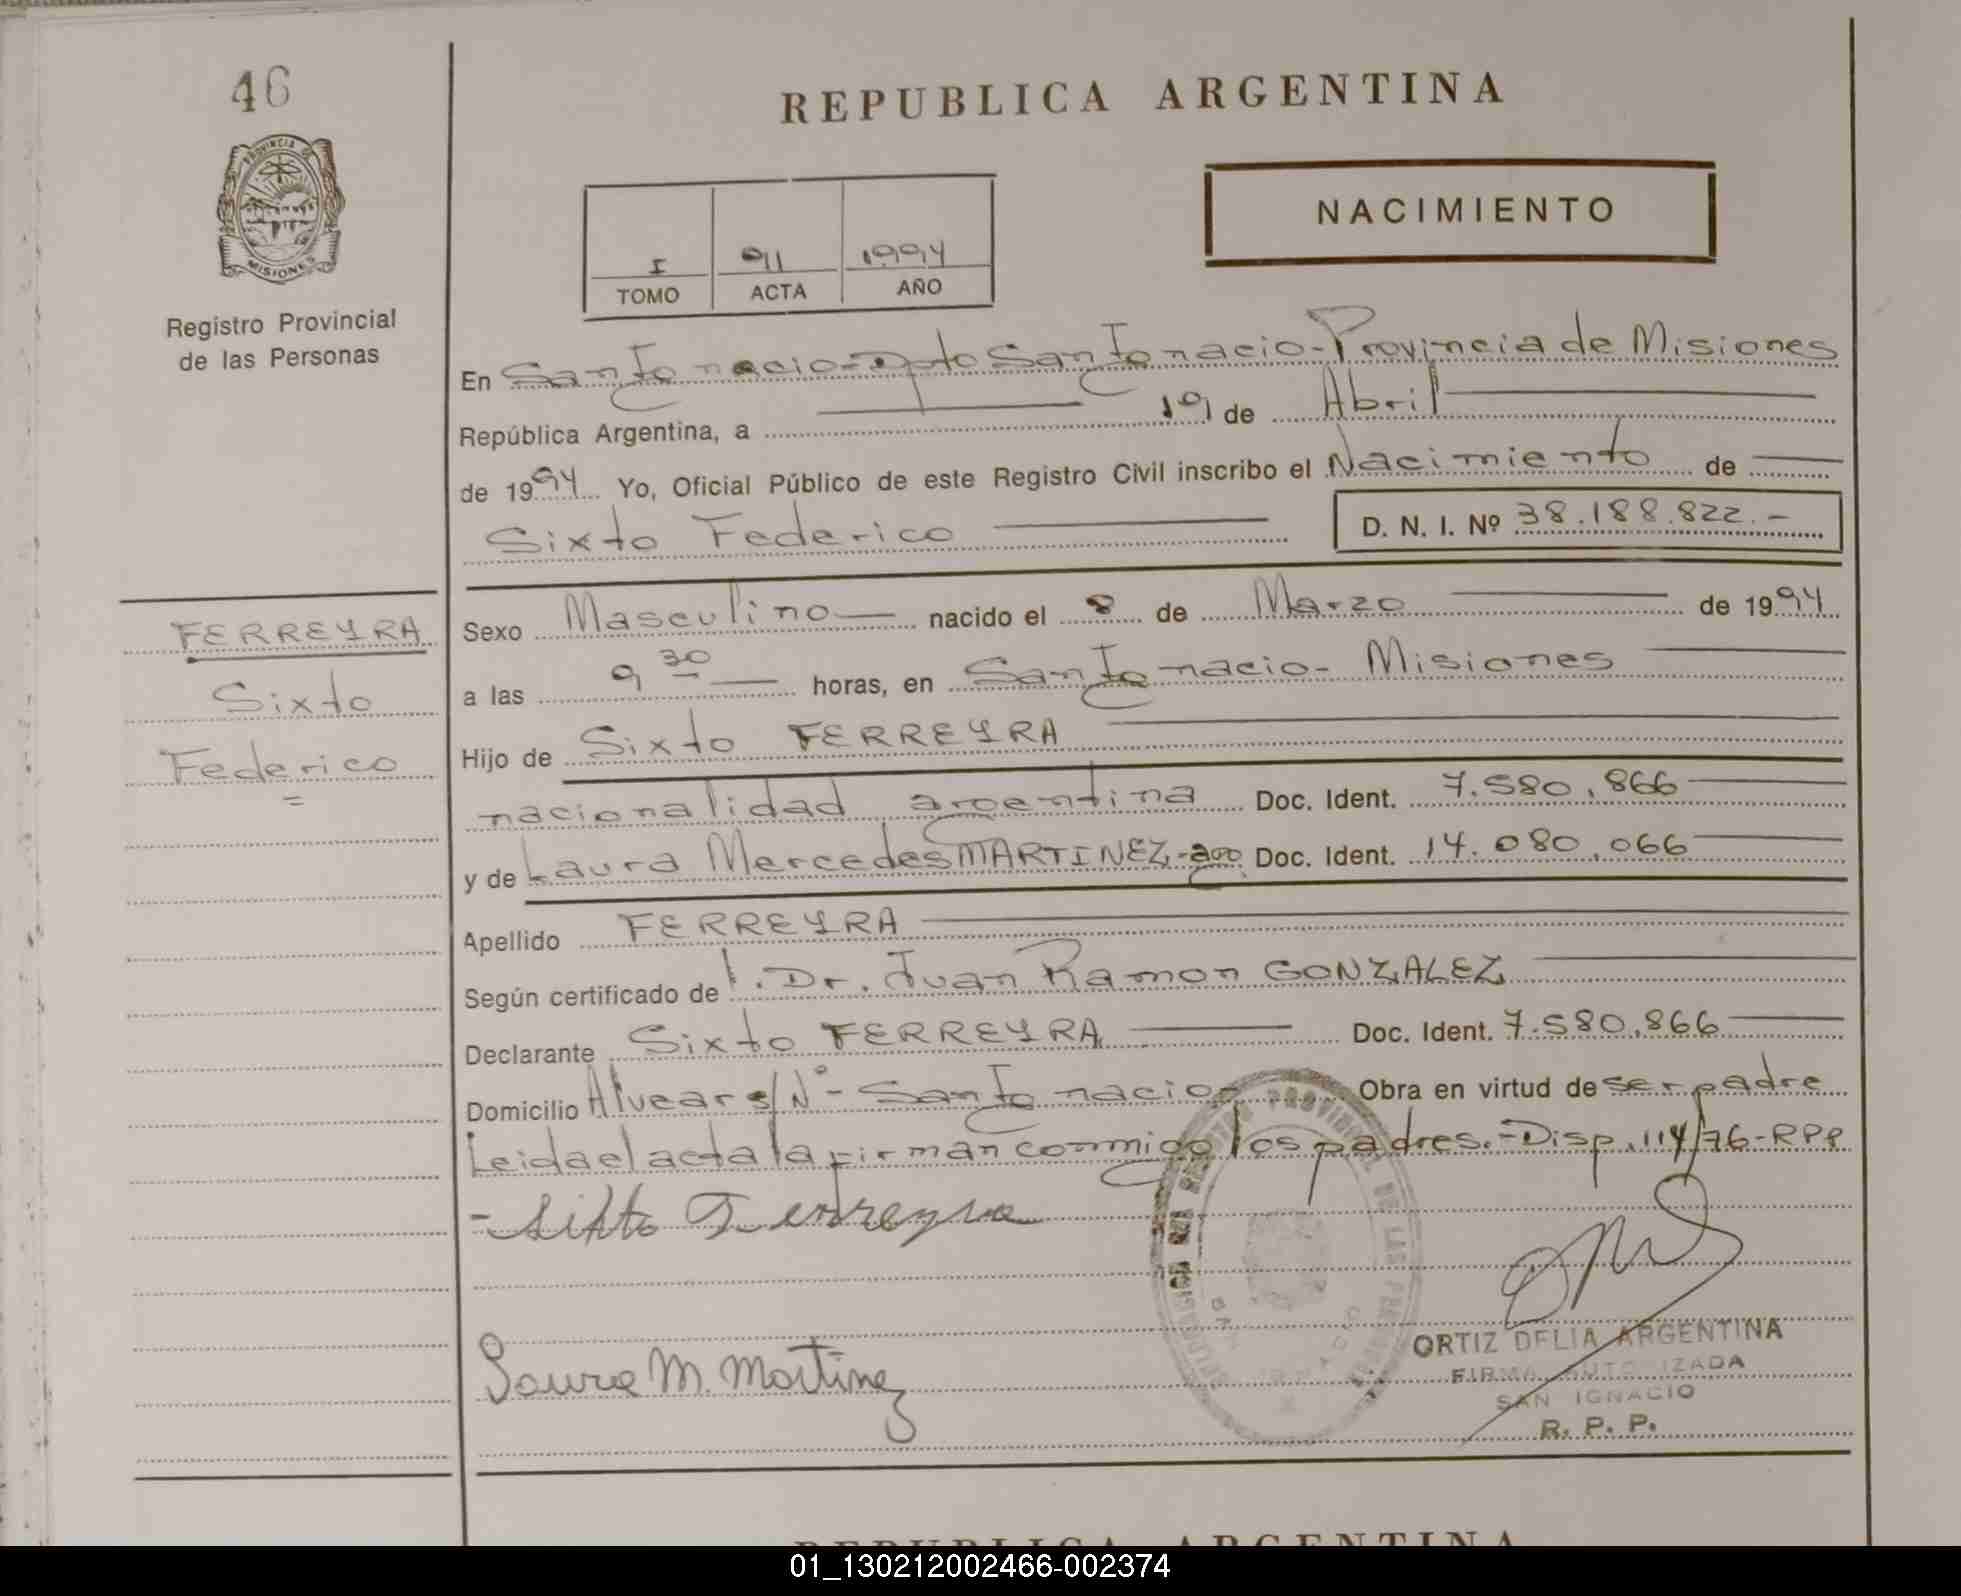 46
PROVINCIA DE
MISIONES
Registro Provincial
de las Personas
FERREYRA
Sixto
Federico
=
REPUBLICA ARGENTINA
NACIMIENTO
I 91 1994
TOMO ACTA AÑO
En San Ignacio - Dpto San Ignacio - Provincia de Misiones
República Argentina, a 19 de Abril
de 1994 Yo, Oficial Público de este Registro Civil inscribo el Nacimiento de
Sixto Federico D. N. I. Nº 38.188.822.-
Sexo Masculino nacido el 8 de Marzo de 1994
a las 9 30 horas, en San Ignacio - Misiones
Hijo de Sixto FERREYRA
nacionalidad argentina Doc. Ident. 7.580.866
y de Laura Mercedes MARTINEZ - Doc. Ident. 14.080.066
Apellido FERREYRA
Según certificado de Dr. Juan Ramon GONZALEZ
Declarante Sixto FERREYRA Doc. Ident. 7.580.866
Domicilio Alvear s/Nº - San Ignacio Obra en virtud de ser padre
Leida el acta la firman conmigo los padres. - Disp. 114/76 - RPP
- Sixto Ferreyra
Laura M. Martinez
ORTIZ DELIA ARGENTINA
FIRMA AUTORIZADA
SAN IGNACIO
R. P. P.
REPUBLICA ARGENTINA
01_130212002466-002374